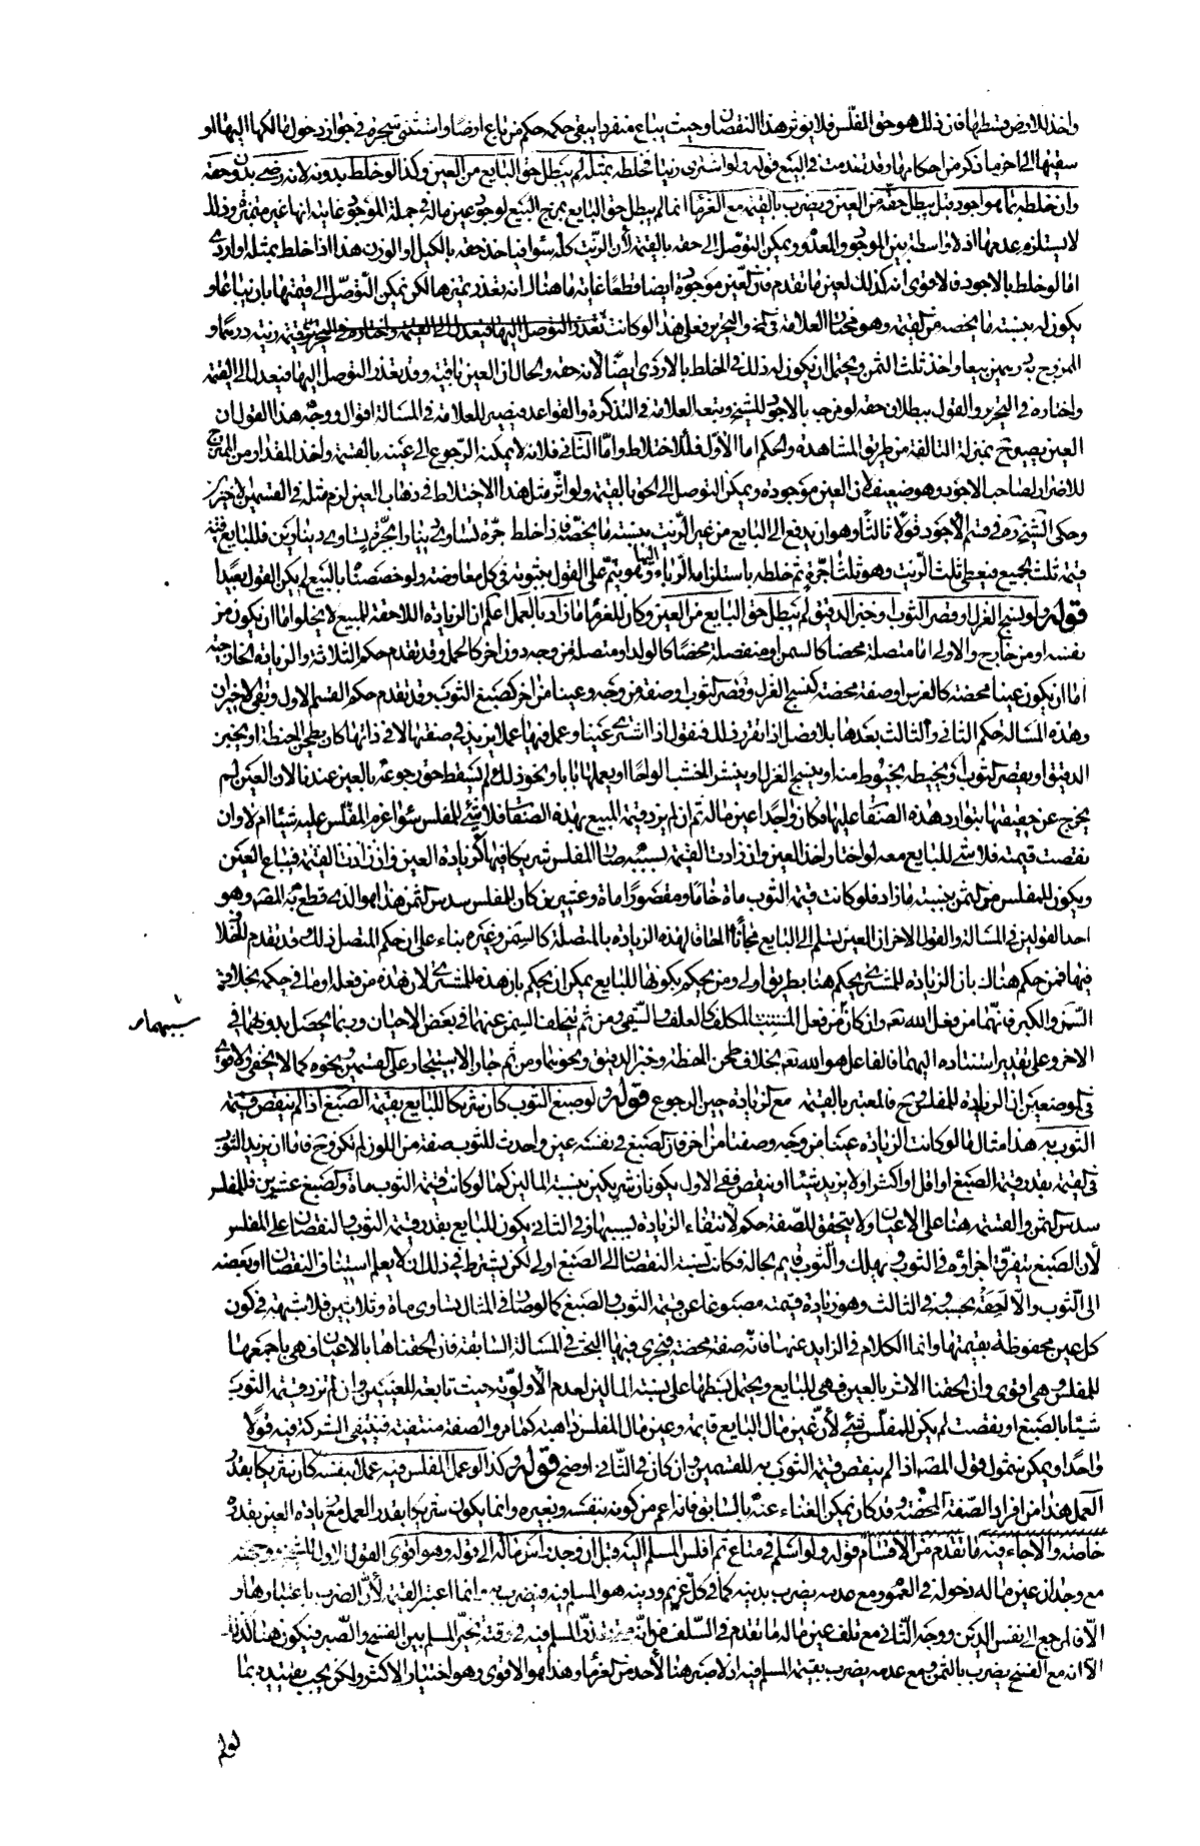 واخذ للارض قسطها فان ذلك هو حق المفلس فلا يؤثر هذا النقصان وحيث يباع منفردا يبقى حكمه حكم من باع ارضا واستثنى شجره في جواز دخول مالكها اليها او
سقيها الى اخر ما ذكر من احكامها وقد تقدمت في البيع قوله ولو اشترى زيتا فخلطه بمثله لم يبطل حق البايع من العين وكذا لو خلطه بدونه لانه رضي بدون حقه
وان خلطه بما هو اجود قيل يبطل حقه من العين ويضرب بالقيمة مع الغرماء انما لم يبطل حق البايع بمزج المبيع لوجود عين ماله في جملة الموجود غايته انها غير متميزة وذلك
لا يستلزم عدمها اذ لا واسطة بين الموجود والمعدوم ويمكن التوصل الى حقه بالقيمة لأن الزيت كله سواء فياخذ حقه بالكيل او الوزن هذا اذا خلط بمثله او اردى
اما لو خلط بالاجود فالاقوى انه كذلك لعين ما تقدم فان العين موجودة ايضا قطعا غاية ما هناك انه تعذر تميزها لكن يمكن التوصل الى قيمتها بان يباعا و
يكون له بنسبة ما يخصه من القيمة وهو مختار العلامة في لف والتحرير فعلى هذا لو كانت قيمة زيته درهما و
الممزوج به درهمين بيعا واخذ ثلث الثمن ويحتمل ان يكون له ذلك في الخلط بالاردى ايضا لأنه حقه والحال ان العين باقية وقد تعذر التوصل اليها فيعدل الى القيمة
واختاره في التحرير والقول ببطلان حقه لو مزجت بالاجود للشيخ وتبعه العلامة في التذكرة والقواعد فيصير للعلامة في المسالة اقوال ووجه هذا القول ان
العين يصير ح بمنزلة التالفة من طريق المشاهدة والحكم اما الأول فللاختلاط واما الثاني فلانه لا يمكنه الرجوع الى عينه بالقسمة واخذ المقدار من الممتزج
للاضرار لصاحب الاجود وهو ضعيف لان العين موجودة ويمكن التوصل الى الحق بالقيمة ولو اثر مثل هذا الاختلاط في ذهاب العين لزم مثله في القسمين الاخيرين
وحكى الشيخ ره في قسم الاجود قولا ثالثا وهو ان يدفع الى البايع من عين الزيت بنسبة ما يخصه فاذا خلط جرة تساوي دينارا بجرة تساوي دينارين فللبايع قيمة
قيمة ثلث الجميع فيعطى ثلث الزيت وهو ثلثا جرة ثم خلطه باستلزامه الربا وانما يتم على القول بثبوته في كل معاوضة ولو خصصناه بالبيع لم يكن القول بعيدا
قوله ولو نسج الغزل او قصر الثوب او خبز الدقيق لم يبطل حق البايع من العين وكان للغرماء ما زاد بالعمل اعلم ان الزيادة اللاحقة للمبيع لا يخلو اما ان يكون من
نفسه او من خارج والاولى اما متصلة محضا كالسمن او منفصلة محضا كالولد او متصلة من وجه دون اخر كالحمل وقد تقدم حكم الثلاثة والزيادة الخارجة
اما ان يكون عينا محضة كالغرس او صفة محضة كنسج الغزل وقصر الثوب او صفة من وجه وعينا من اخر كصبغ الثوب وقد تقدم حكم القسم الاول وبقي الاخيران
وهذه المسالة حكم الثاني والثالث بعدها بلا فصل اذا تقرر ذلك فنقول اذا اشترى عينا وعمل فيها عملا يزيد في صفتها لا في ذاتها كان يطحن الحنطة او يخبز
الدقيق او يقصر الثوب او يخيطه بخيوط منه او ينسج الغزل او ينشر الخشب الواحا او يعملها بابا ونحو ذلك لم يسقط حق رجوعه بالعين عندنا لان العين لم
يخرج عن حقيقتها بتوارد هذه الصفات عليها فكان واجدا عين ماله ثم ان لم يزد قيمة المبيع بهذه الصفات فلا شيء للمفلس سواء غرم المفلس عليه شيئا ام لا وان
نقصت قيمته فلا شيء للبايع معه لو اختار واخذ العين وان زادت القيمة بسببه صار المفلس شريكا فيها كزيادة العين وان زادت القيمة فيباع العين
ويكون للمفلس من الثمن بنسبة ما زاد فلو كانت قيمة الثوب ماة خاما ومقصورا ماة وعشرين كان للمفلس سدس الثمن هذا هو الذي قطع به المصنف وهو
احد القولين في المسالة والقول الاخر ان العين يسلم الى البايع مجانا الحاقا لهذه الزيادة بالمتصلة كالسمن وغيره بناء على ان حكم المتصل ذلك وقد تقدم الخلاف
فيها فمن حكم هناك بان الزيادة للمشتري يحكم هنا بطريق اولى ومن يحكم بكونها للبايع يمكن ان يحكم بان هذه للمشتري لان هذه من فعله او ما في حكمه بخلاف
السمن والكبر فانهما من فعل الله تعه وان كان من فعل المكلف كالعلف والسقي ومن ثم يتخلف السمن عنهما في بعض الاحيان وربما يحصل بدونهما في
الاخر وعلى تقدير استناده اليهما فالفاعل هو الله تعه بخلاف طحن الحنطة وخبز الدقيق ونحوهما ومن ثم جاز الاستيجار على القسمين ونحوه كما لا يخفى والاقوى
في الموضعين ان الزيادة للمفلس وح فالمعتبر بالقيمة مع الزيادة حين الرجوع قوله ولو صبغ الثوب كان شريكا للبايع بقيمة الصبغ اذا لم ينقص قيمة
الثوب به هذا مثال ما لو كانت الزيادة عينا من وجه وصفة من اخر فان الصبغ في نفسه عين واحدث للثوب صفة من اللون لم تكن وح فاما ان يزيد الثوب
في القيمة بقدر قيمة الصبغ او اقل او اكثر او لا يزيد شيئا او ينقص ففي الاول يكونان شريكين بنسبة المالين كما لو كانت قيمة الثوب ماة والصبغ عشرين فللمفلس
سدس الثمن والقسمة هنا على الاعيان ولا يتحقق للصفة حكم لانتفاء الزيادة بسببها وفي الثاني يكون للبايع بقدر قيمة الثوب والنقصان على المفلس
لأن الصبغ يتفرق اجزاؤه في الثوب ويهلك والثوب قايم بحاله فكانت نسبة النقصان الى الصبغ اولى لكن يشترط في ذلك ان لا يعلم استناد النقصان او بعضه
الى الثوب والا لحقه بحسبه وفي الثالث وهو زيادة قيمته مصبوغا عن قيمة الثوب والصبغ كما لو صار في المثال يساوي ماة وثلاثين فلا شبهة في كون
كل عين محفوظة بقيمتها وانما الكلام في الزايد عنهما فانه صفة محضة فيجري فيها البحث في المسالة السابقة فان الحقناها بالاعيان فهي باجمعها
للمفلس وهي اقوى وان الحقنا الاثر بالعين فهي للبايع ويحتمل بسطها على نسبة المالين لعدم الأولوية حيث تابعة للعينين وان لم تزد قيمة الثوب
شيئا بالصبغ او نقصت لم يكن للمفلس شيء لأن عين مال البايع قايمة وعين مال المفلس ذاهبة كما مر والصفة منتفية فينتفي الشركة فيه قولا
واحدا ويمكن شمول قول المصنف اذا لم ينقص قيمة الثوب به للقسمين وان كان في الثاني اوضح قوله وكذا لو عمل المفلس فيه عملا بنفسه كان شريكا بقدر
العمل هذا من افراد الصفة المحضة وقد كان يمكن الغناء عنه بالسابق فانه اعم من كونه بنفسه وبغيره وانما يكون شريكا بقدر العمل مع زيادة العين بقدره
خاصة والا جاء فيه ما تقدم من الاقسام قوله ولو اسلم في متاع ثم افلس المسلم اليه قيل ان وجد راس ماله الى قوله وهو اقوى القول الاول للشيخ ووجهه
مع وجدان عين ماله دخوله في العموم ومع عدمه يضرب بدينه كما في كل غريم ودينه هو المسلم فيه فيضرب به وانما اعتبر القيمة لأن الضرب باعتبارها و
الا فالمرجع الى نفس الدين ووجه الثاني مع تلف عين ماله ما تقدم في السلف من انه متى تعذر المسلم فيه في وقته تخير المسلم بين الفسخ والصبر فيكون هنا كذلك
الا انه مع الفسخ يضرب بالثمن ومع عدمه يضرب بقيمة المسلم فيه اذ لا صبر هنا لأحد من الغرماء وهذا هو الاقوى وهو اختيار الاكثر ولكن يجب تقييده بما
لو لم